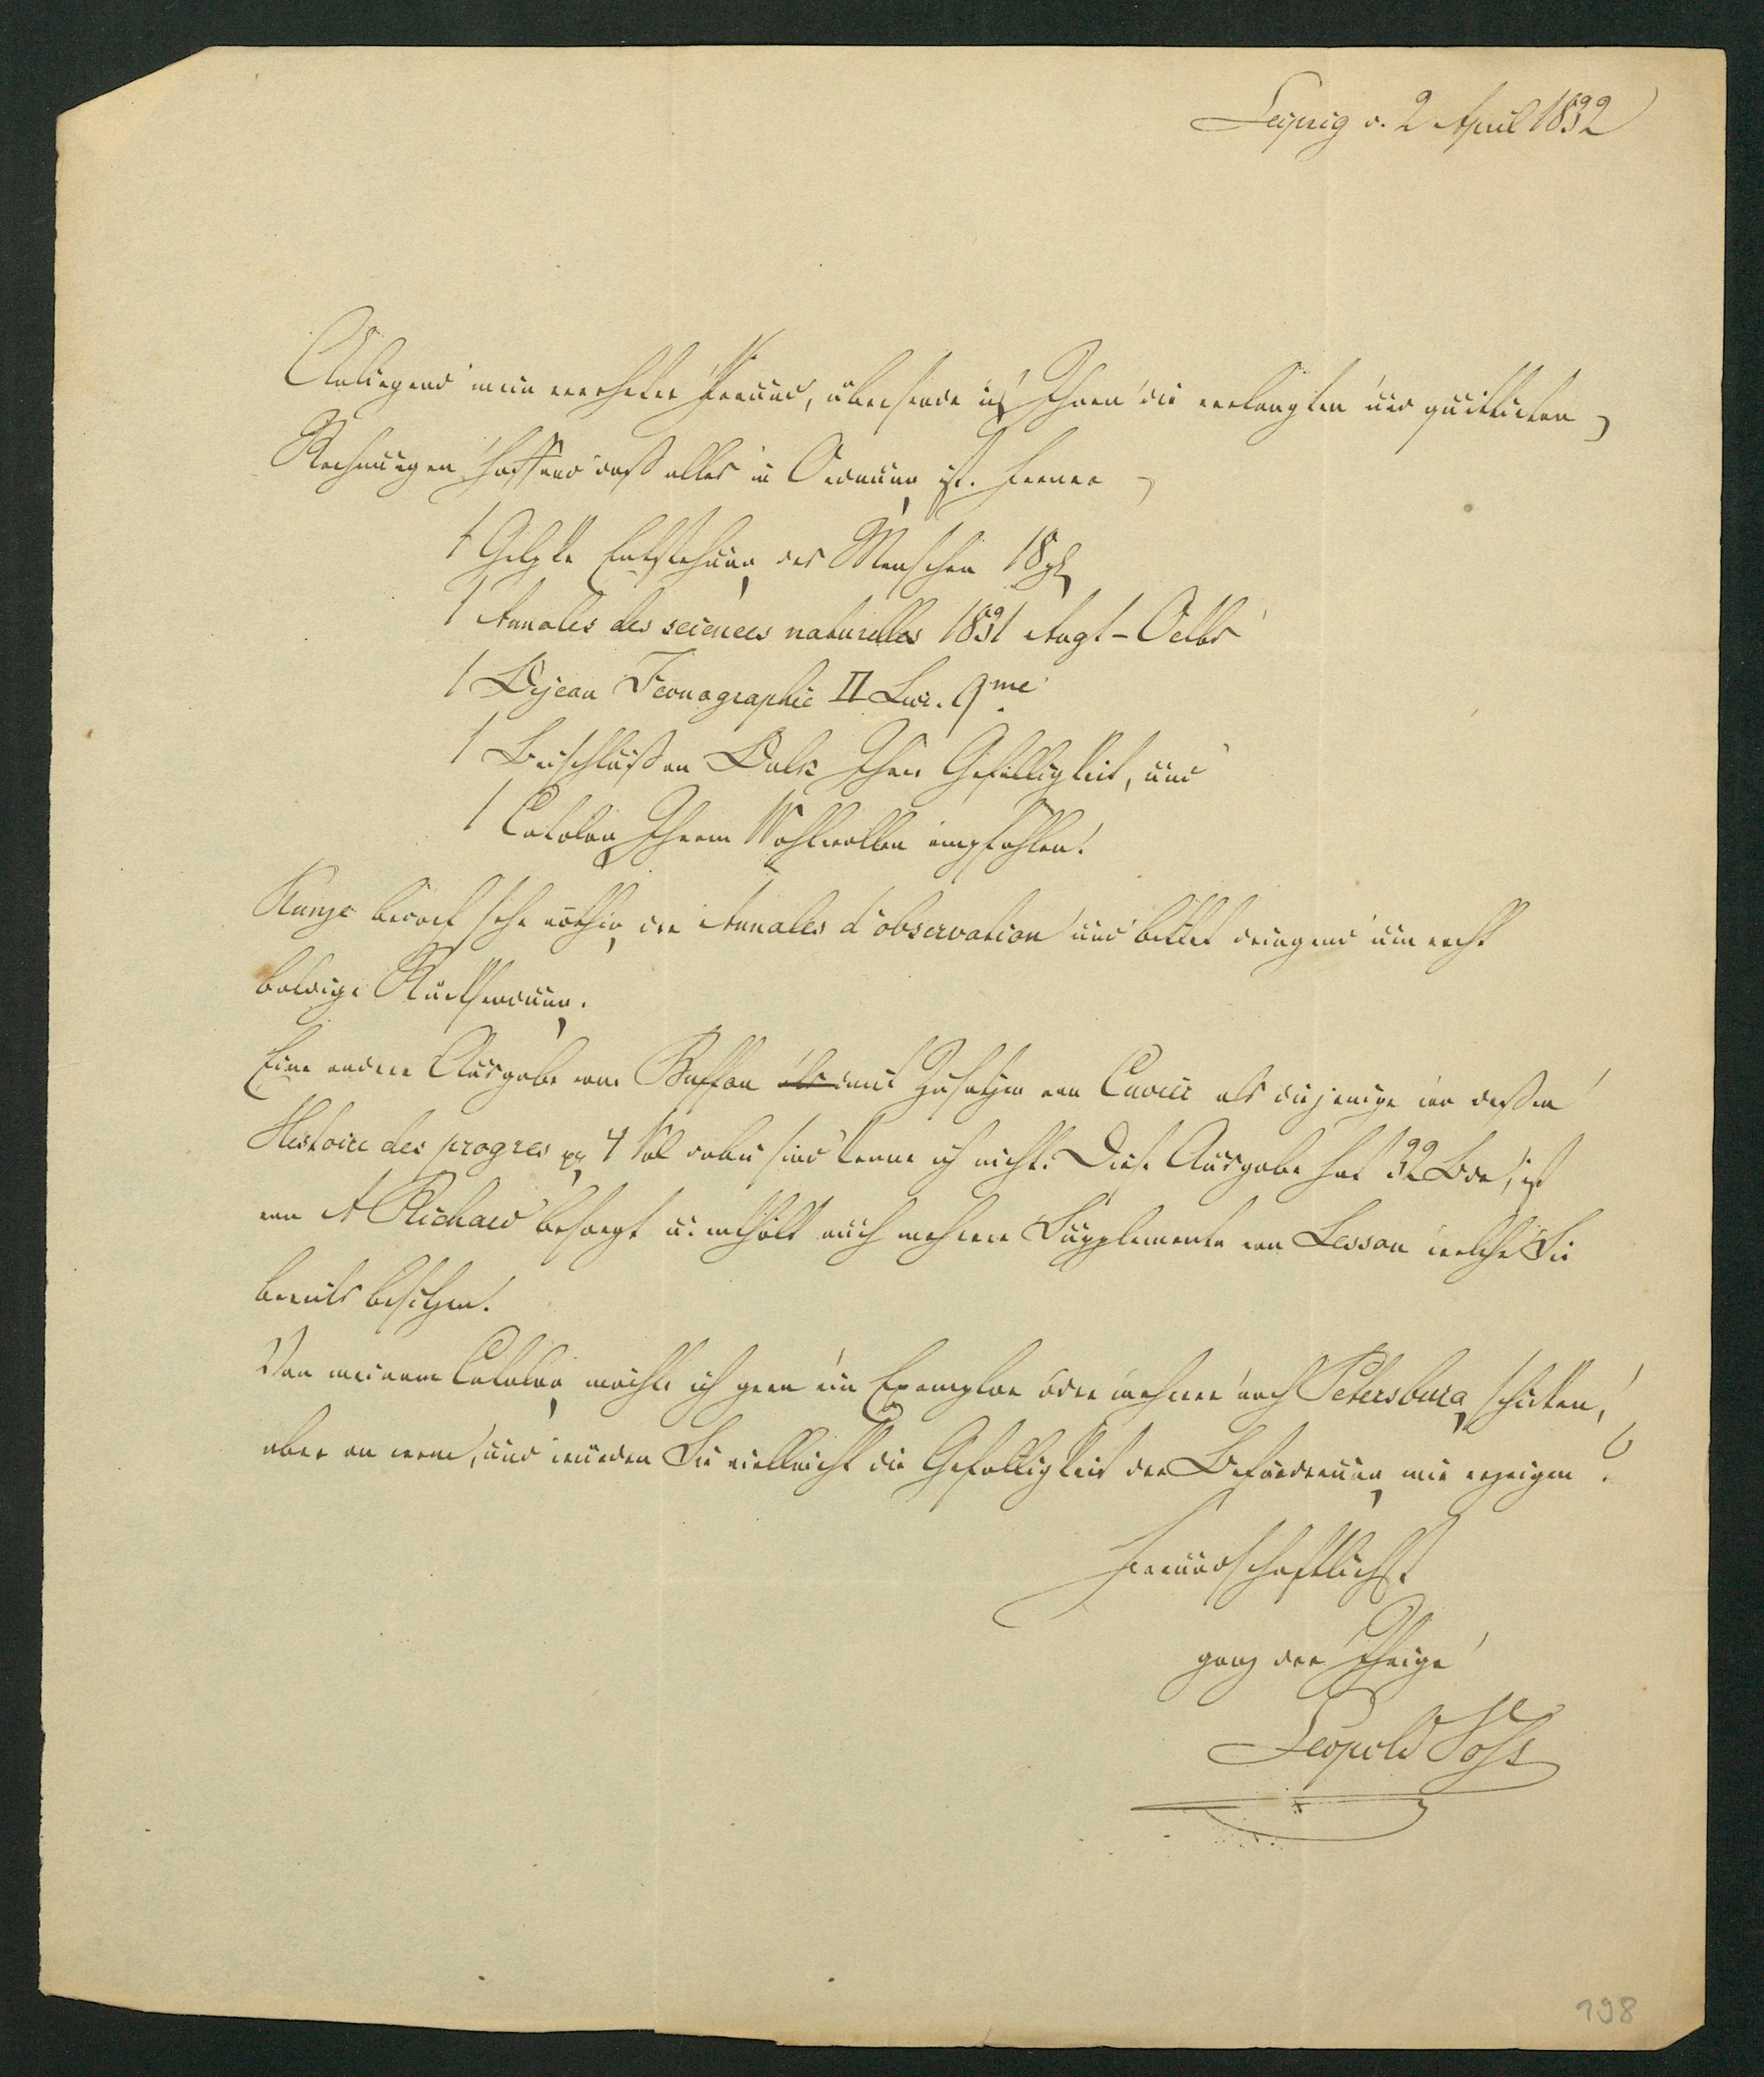 Leipzig d. 2 April 1832
Anliegend mein verehrter Freund, übersende ich Ihnen die verlangten und quittirten
Rechnungen hoffend daß alles in Ordnung ist. Ferner
1 Gelpke Entstehung des Menschen 18 gl
1 Annales des sciences naturelles 1831 Augt - Octbr
1 Dejean Iconographie II Livr. 9me
1 Beischluß an Ihrer Gefälligkeit, und
1 Catalog Ihrem Wohlwollen empfohlen!
Kunze bedarf sehr nöthig der Annales d'observation und bittet dringend um recht
baldige Rücksendung.
Eine andere Ausgabe von Buffon mit Zusätzen von Cuvier als diejenige wo deßen
Histoire des progres pp 4 Vol dabei sind kenne ich nicht. Diese Ausgabe hat 32 Bde, ist
von A Richard besorgt u. enthält auch mehrere Supplemente von Lesson welche Sie
bereits besitzen.
Von meinem Catalog möchte ich gern ein Exemplar oder mehrere nach Petersburg schicken,
aber an wem, und würden Sie vielleicht die Gefälligkeit der Beförderung mir erzeigen?
Freundschaftlichst
ganz der Ihrige
Leopold Voß
198